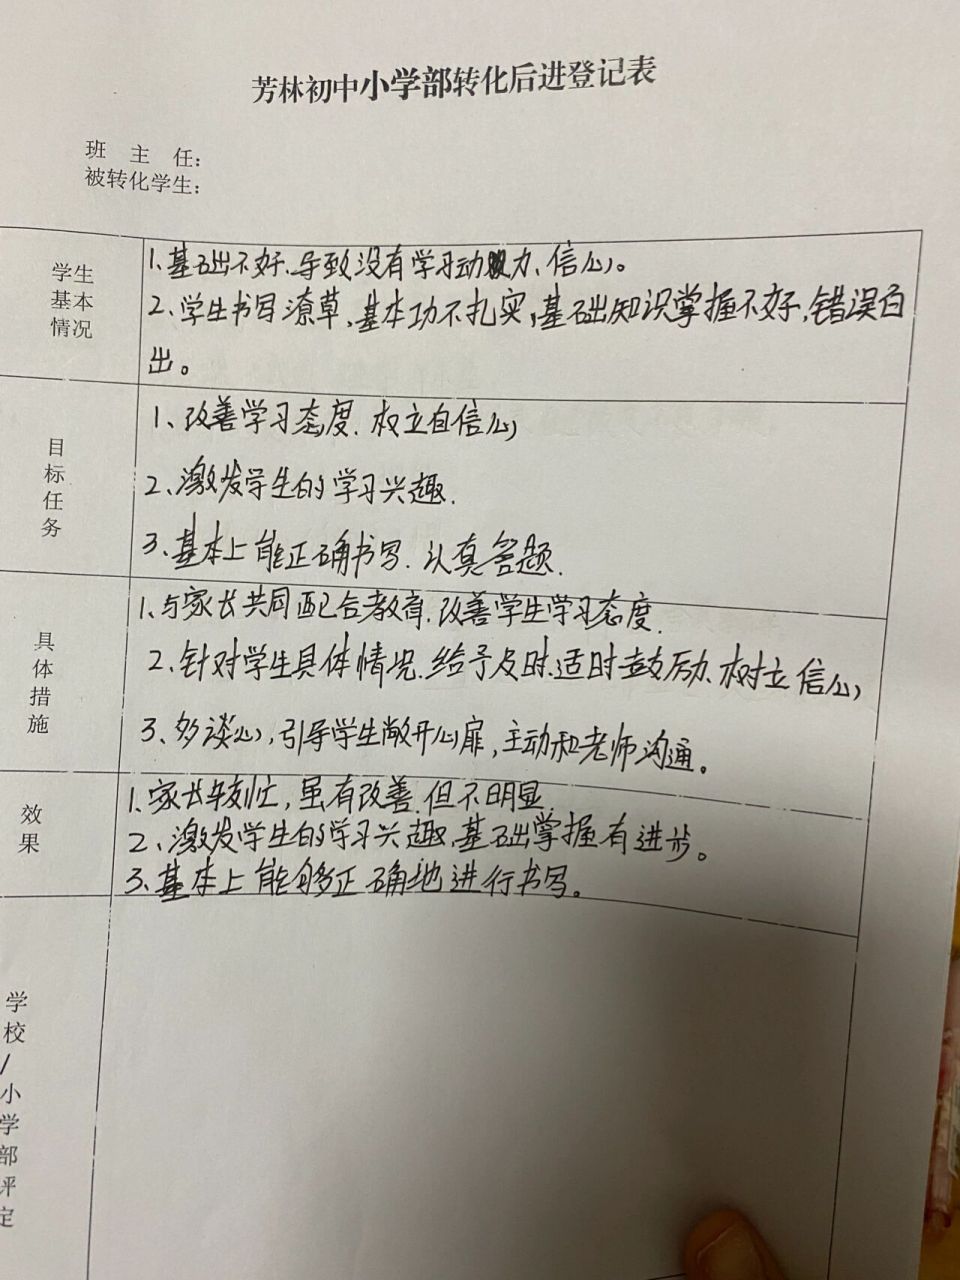 芳林初中小学部转化后进登记表
班 主 任：
被转化学生：
学生
基本
情况
1.基础不好、导致没有学习动力、信心。
2、学生书写潦草、基本功不扎实，基础知识掌握不好，错误百
出。
目
标
任
务
1、改善学习态度.权立自信心
2、激发学生的学习兴趣.
3、基本上能正确书写.认真答题.
具
体
措
施
1、与家长共同配合教育.改善学生学习态度.
2、针对学生具体情况.给予及时.适时鼓励、树立信心
3、多谈心，引导学生敞开心扉，主动和老师沟通。
效
果
1.家长较忙，虽有改善.但不明显.
2、激发学生的学习兴趣、基础掌握有进步。
3.基本上能够正确地进行书写。
学
校
/
小
学
部
评
定